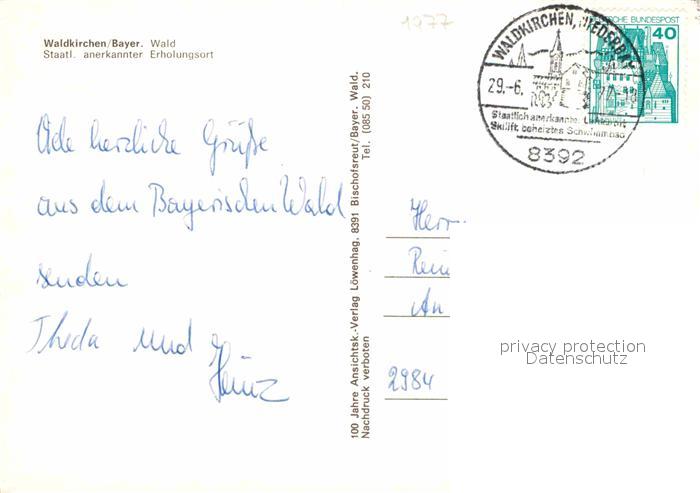 1977
Waldkirchen/Bayer. Wald
Staatl. anerkannter Erholungsort
herzliche Grüße
aus dem Bayerischen Wald
senden
Theda und
Heinz
100 Jahre Ansichtsk.-Verlag Löwenhag, 8391 Bischofsreut/Bayer. Wald.
Nachdruck verboten Tel. (085 50) 210
WALDKIRCHEN, NIEDERBAY
29.-6.
Staatlich anerkannter
Skilift beheiztes Schwimmbad
8392
DEUTSCHE BUNDESPOST
40
Herr
Rein
An
2984
privacy protection
Datenschutz